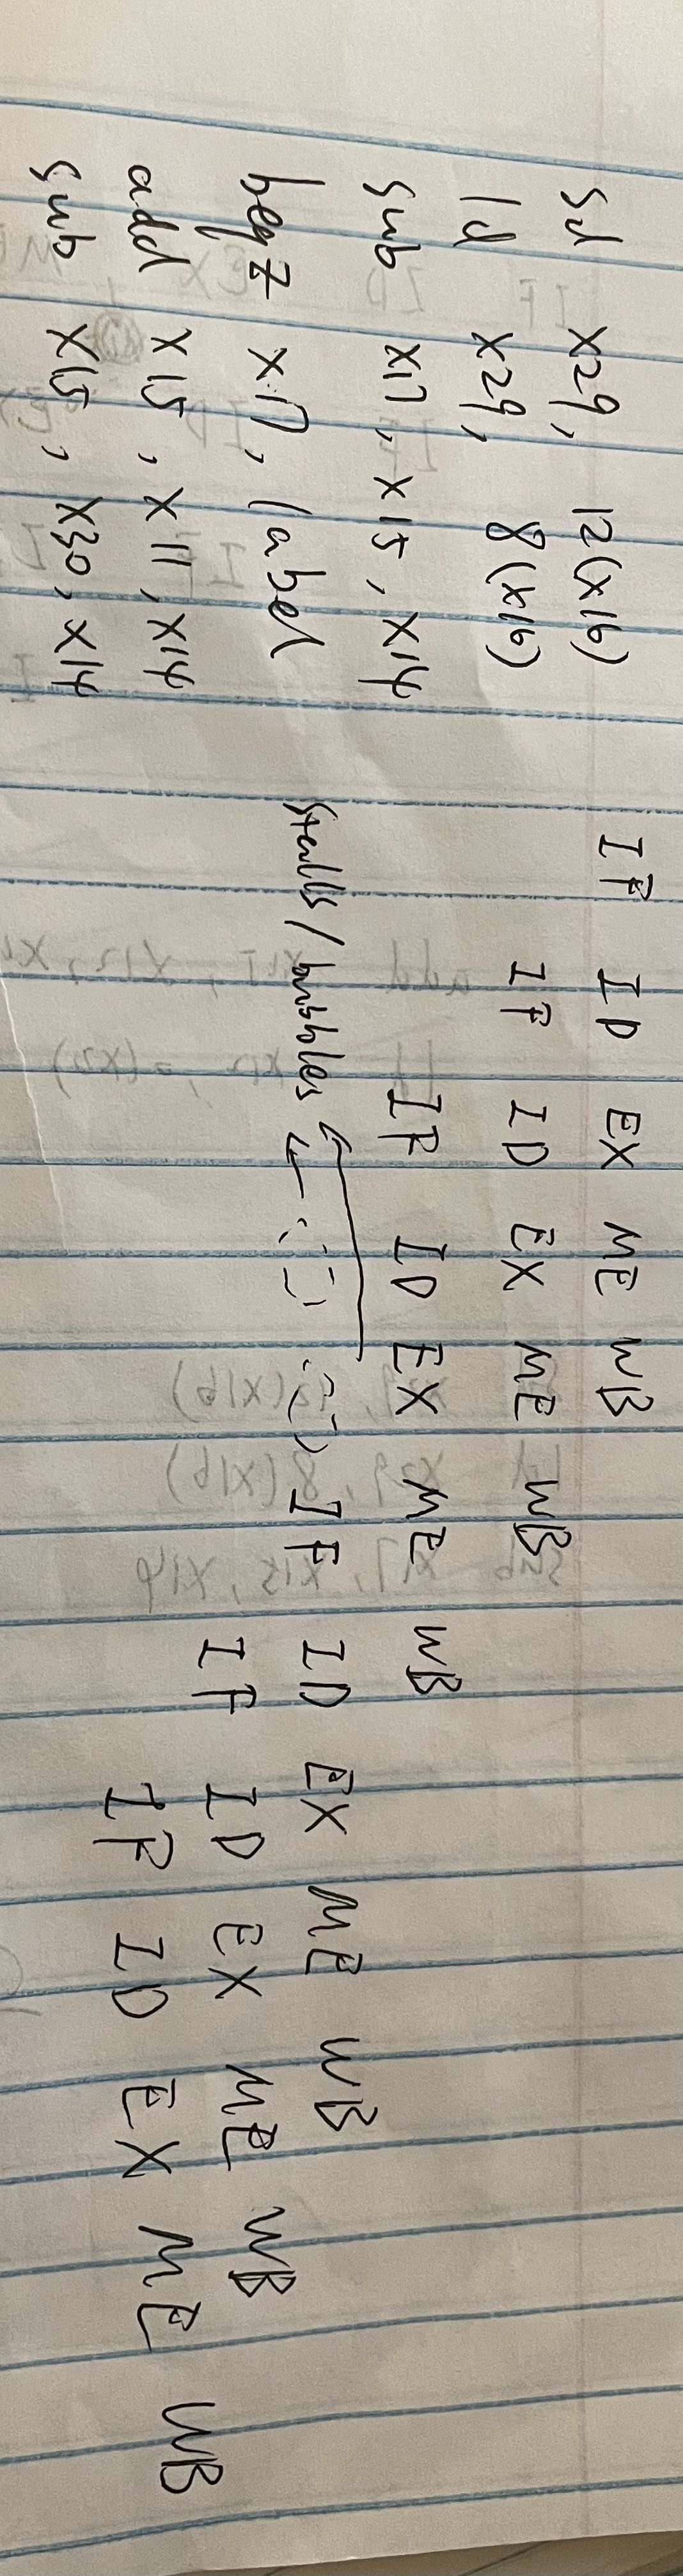 sd x29, 12(x16) IF ID EX ME WB
ld x29, 8(x16) IF ID EX ME WB
sub x17, x15, x14 IF ID EX ME WB
beqz x17, label IF ID EX ME WB
stalls/bubbles
add x15, x11, x14 IF ID EX ME WB
sub x15, x30, x14 IF ID EX ME WB